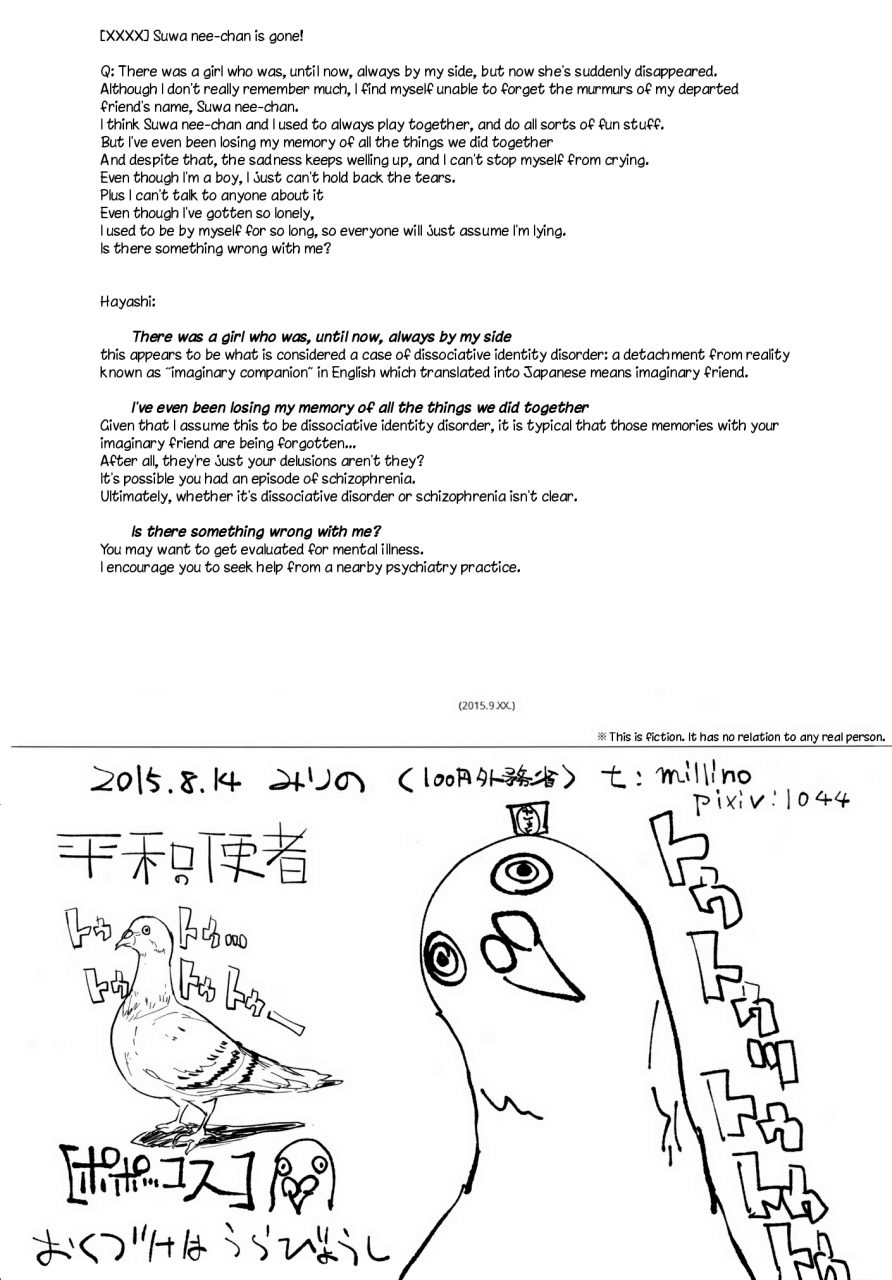 [XXXX] Suwa nee-chan is gone!
Q: There was a girl who was, until now, always by my side, but now she's suddenly disappeared.
Although I don't really remember much, I find myself unable to forget the murmurs of my departed
friend's name, Suwa nee-chan.
I think Suwa nee-chan and I used to always play together, and do all sorts of fun stuff.
But I've even been losing my memory of all the things we did together
And despite that, the sadness keeps welling up, and I can't stop myself from crying.
Even though I'm a boy, I just can't hold back the tears.
Plus I can't talk to anyone about it
Even though I've gotten so lonely,
I used to be by myself for so long, so everyone will just assume I'm lying.
Is there something wrong with me?
Hayashi:
There was a girl who was, until now, always by my side
this appears to be what is considered a case of dissociative identity disorder: a detachment from reality
known as "imaginary companion" in English which translated into Japanese means imaginary friend.
I've even been losing my memory of all the things we did together
Given that I assume this to be dissociative identity disorder, it is typical that those memories with your
imaginary friend are being forgotten...
After all, they're just your delusions aren't they?
It's possible you had an episode of schizophrenia.
Ultimately, whether it's dissociative disorder or schizophrenia isn't clear.
Is there something wrong with me?
You may want to get evaluated for mental illness.
I encourage you to seek help from a nearby psychiatry practice.
(2015.9.XX.)
※ This is fiction. It has no relation to any real person.
2015.8.14 みりの (100円外務省) t: millino
pixiv:1044
平和の使者
トゥ
トゥ...
トゥ
トゥ トゥー
トゥ
トゥ
トゥ
[ポポ...コス]
おくづけは うらびょうし